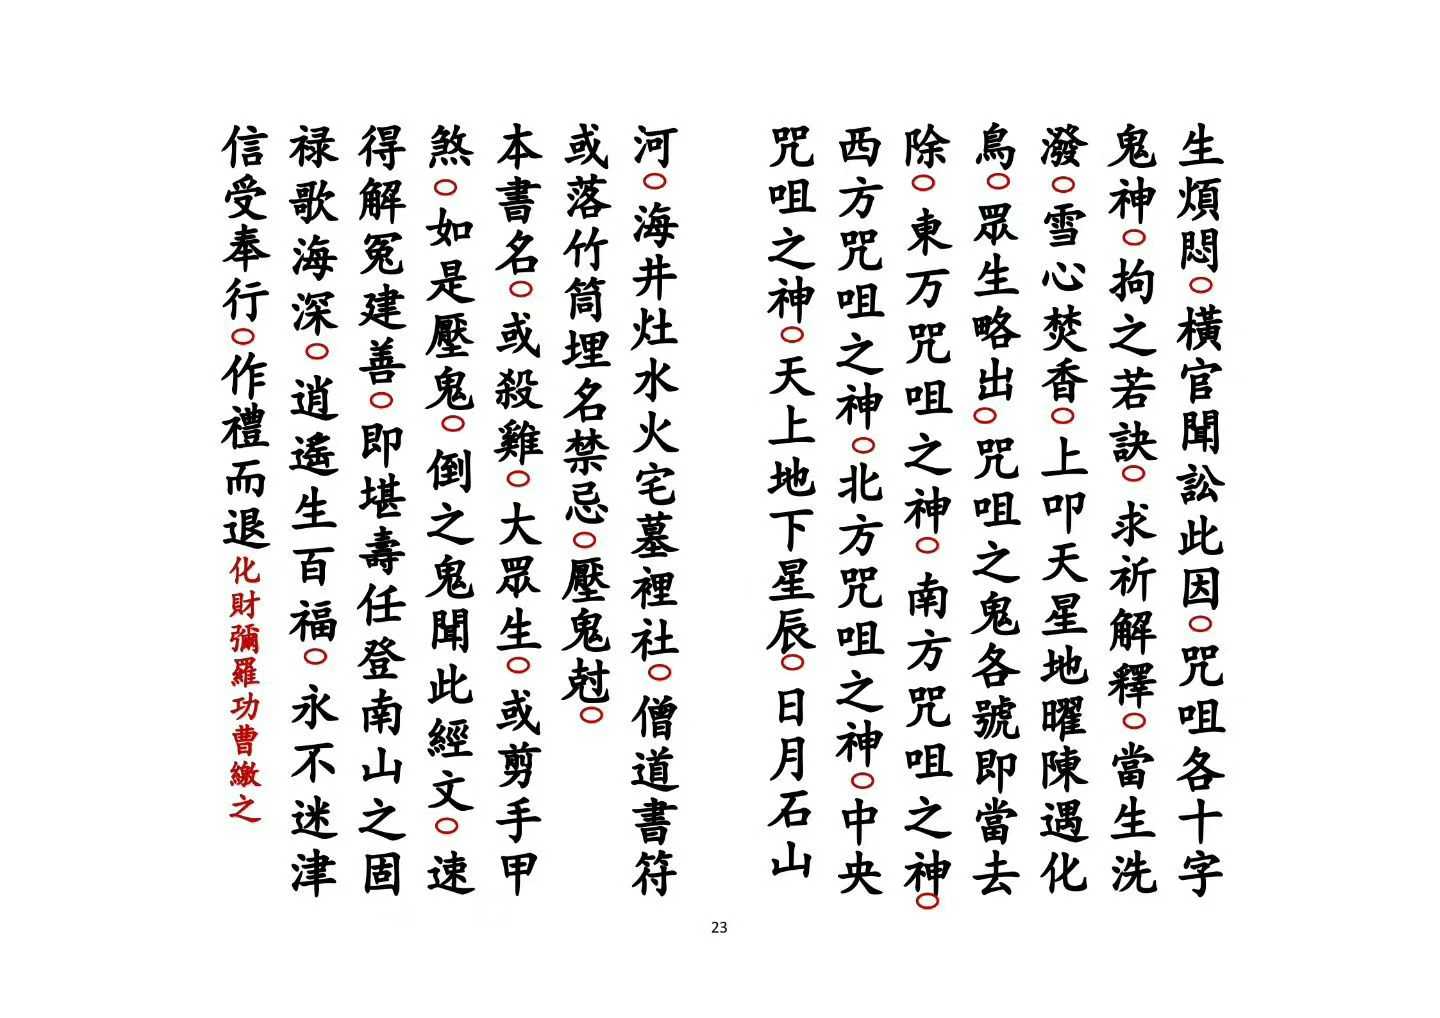 生煩悶○橫官聞訟此因○咒咀各十字
鬼神○拘之若訣○求祈解釋○當生洗
潑○雪心焚香○上叩天星地曜陳遇化
鳥○眾生略出○咒咀之鬼各號即當去
除○東万咒咀之神○南方咒咀之神○
西方咒咀之神○北方咒咀之神○中央
咒咀之神○天上地下星辰○日月石山
河○海井灶水火宅墓裡社○僧道書符
或落竹筒埋名禁忌○壓鬼尅○
本書名○或殺雞○大眾生○或剪手甲
煞○如是壓鬼○倒之鬼聞此經文○速
得解冤建善○即堪壽任登南山之固
禄歌海深○逍遙生百福○永不迷津
信受奉行○作禮而退化財彌羅功曹繳之
23